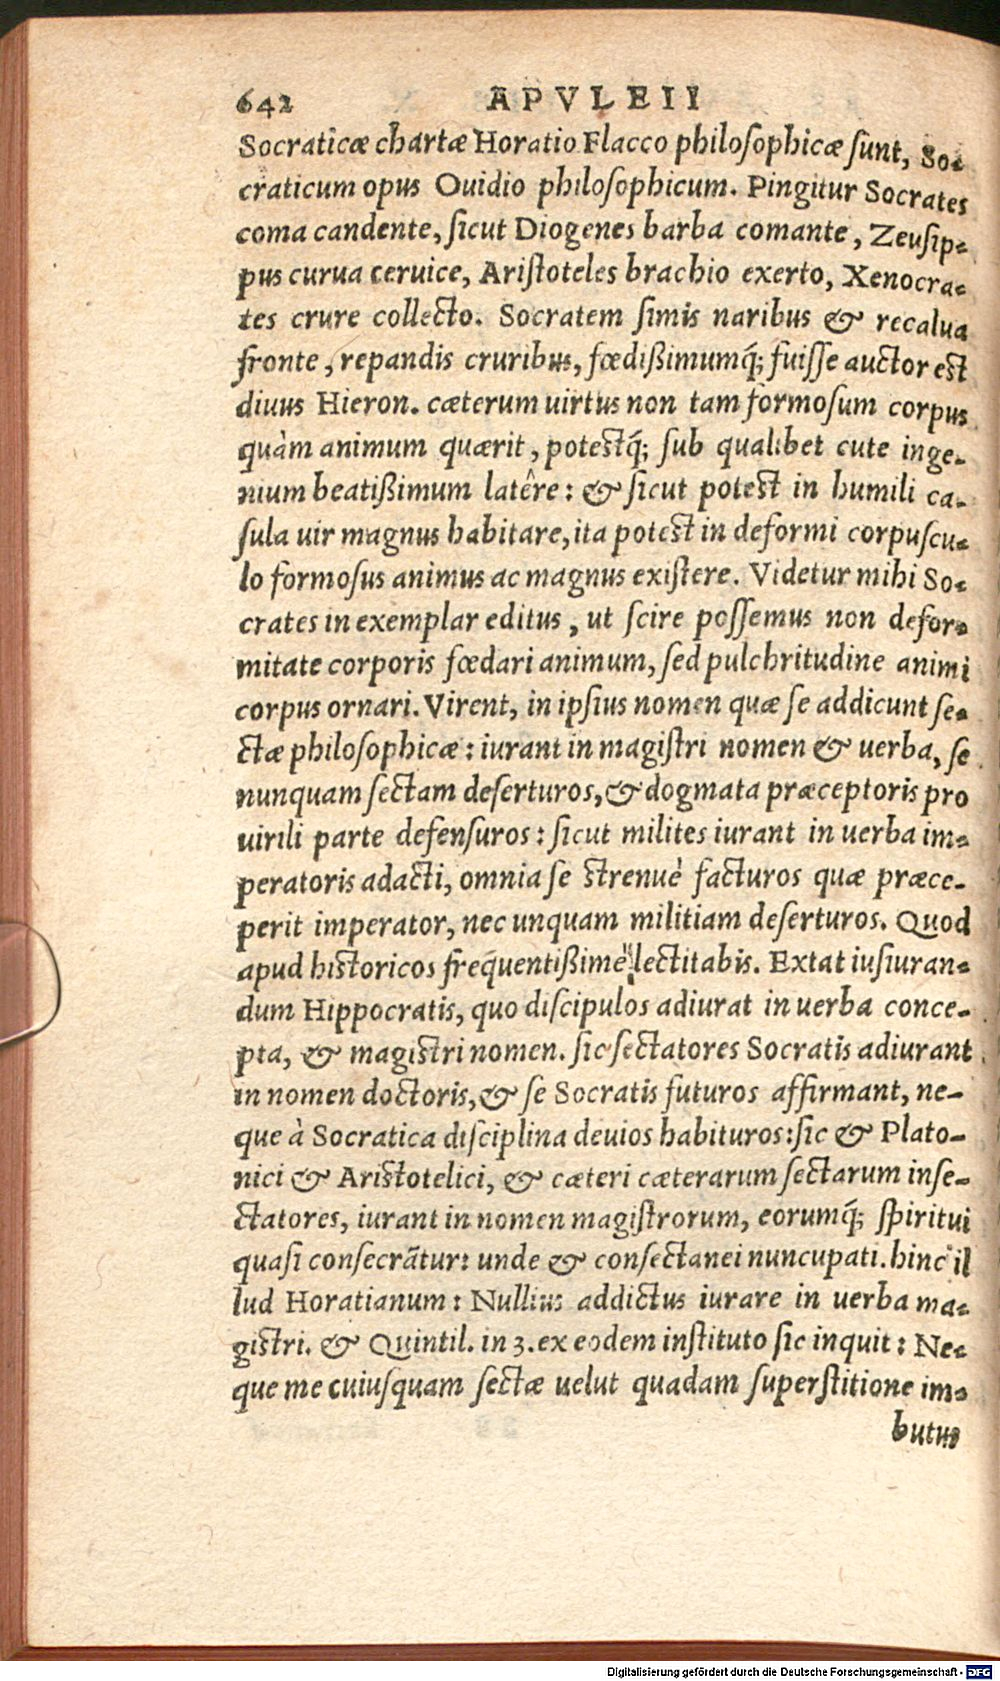 642 APVLEII
Socraticæ chartæ Horatio Flacco philosophicæ sunt, So-
craticum opus Ouidio philosophicum. Pingitur Socrates
coma candente, sicut Diogenes barba comante, Zeusip-
pus curua ceruice, Aristoteles brachio exerto, Xenocra-
tes crure collecto. Socratem simis naribus & recalua
fronte, repandis cruribus, fœdißimumq́; fuisse auctor est
diuus Hieron. cæterum uirtus non tam formosum corpus
quàm animum quærit, potestq́; sub qualibet cute inge-
nium beatißimum latêre: & sicut potest in humili ca-
sula uir magnus habitare, ita potest in deformi corpuscu-
lo formosus animus ac magnus existere. Videtur mihi So-
crates in exemplar editus, ut scire possemus non defor-
mitate corporis fœdari animum, sed pulchritudine animi
corpus ornari. Virent, in ipsius nomen quæ se addicunt se-
ctæ philosophicæ: iurant in magistri nomen & uerba, se
nunquam sectam deserturos, & dogmata præceptoris pro
uirili parte defensuros: sicut milites iurant in uerba im-
peratoris adacti, omnia se strenuè facturos quæ præce-
perit imperator, nec unquam militiam deserturos. Quod
apud historicos frequentißime lectitabis. Extat iusiuran-
dum Hippocratis, quo discipulos adiurat in uerba conce-
pta, & magistri nomen. sic sectatores Socratis adiurant
in nomen doctoris, & se Socratis futuros affirmant, ne-
que à Socratica disciplina deuios habituros: sic & Plato-
nici & Aristotelici, & cæteri cæterarum sectarum inse-
ctatores, iurant in nomen magistrorum, eorumq́; spiritui
quasi consecrãtur: unde & consectanei nuncupati. hinc il
lud Horatianum: Nullius addictus iurare in uerba ma-
gistri. & Quintil. in 3. ex eodem instituto sic inquit: Ne-
que me cuiusquam sectæ uelut quadam superstitione im-
butus
Digitalisierung gefördert durch die Deutsche Forschungsgemeinschaft - DFG